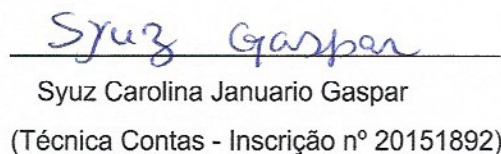 Syuz Gaspar
Syuz Carolina Januario Gaspar
(Técnica Contas - Inscrição nº 20151892)